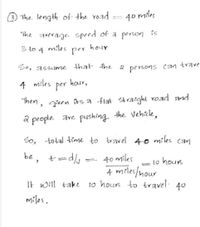 ③ The length of the road = 40 miles
The average speed of a person is
3 to 4 miles per hour
So, assume that the 2 persons can trave
4 miles per hour.
Then, given as a flat straight road and
2 people are pushing the vehicle,
So, total time to travel 40 miles can
be, t = d/s = 40 miles / 4 miles/hour = 10 hours
It will take 10 hours to travel 40
miles.